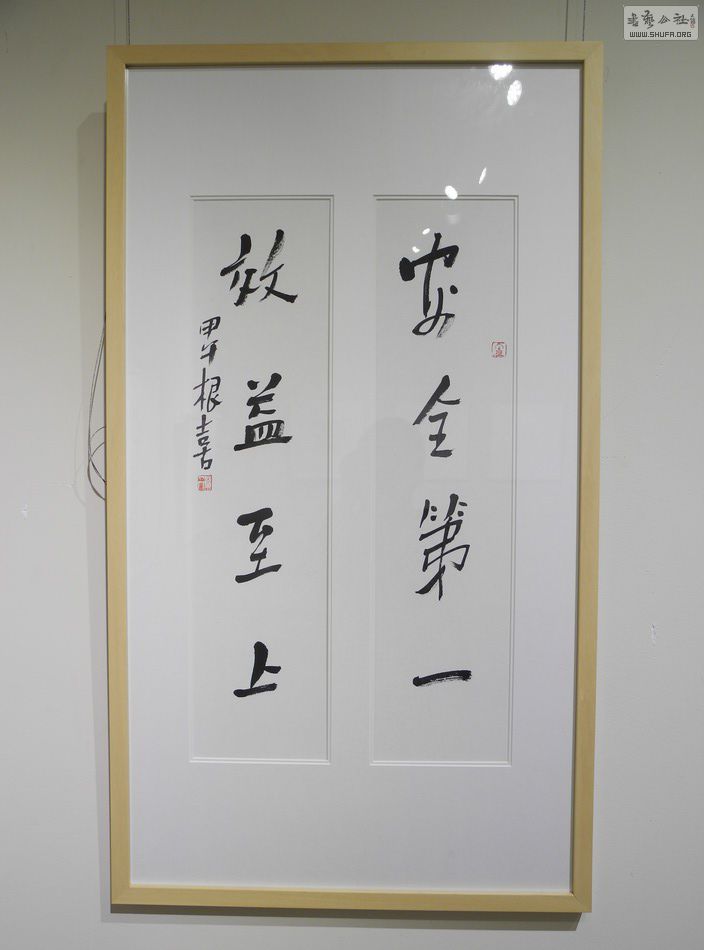 安全第一
效益至上
甲午根喜
书艺公社
WWW.SHUFA.ORG